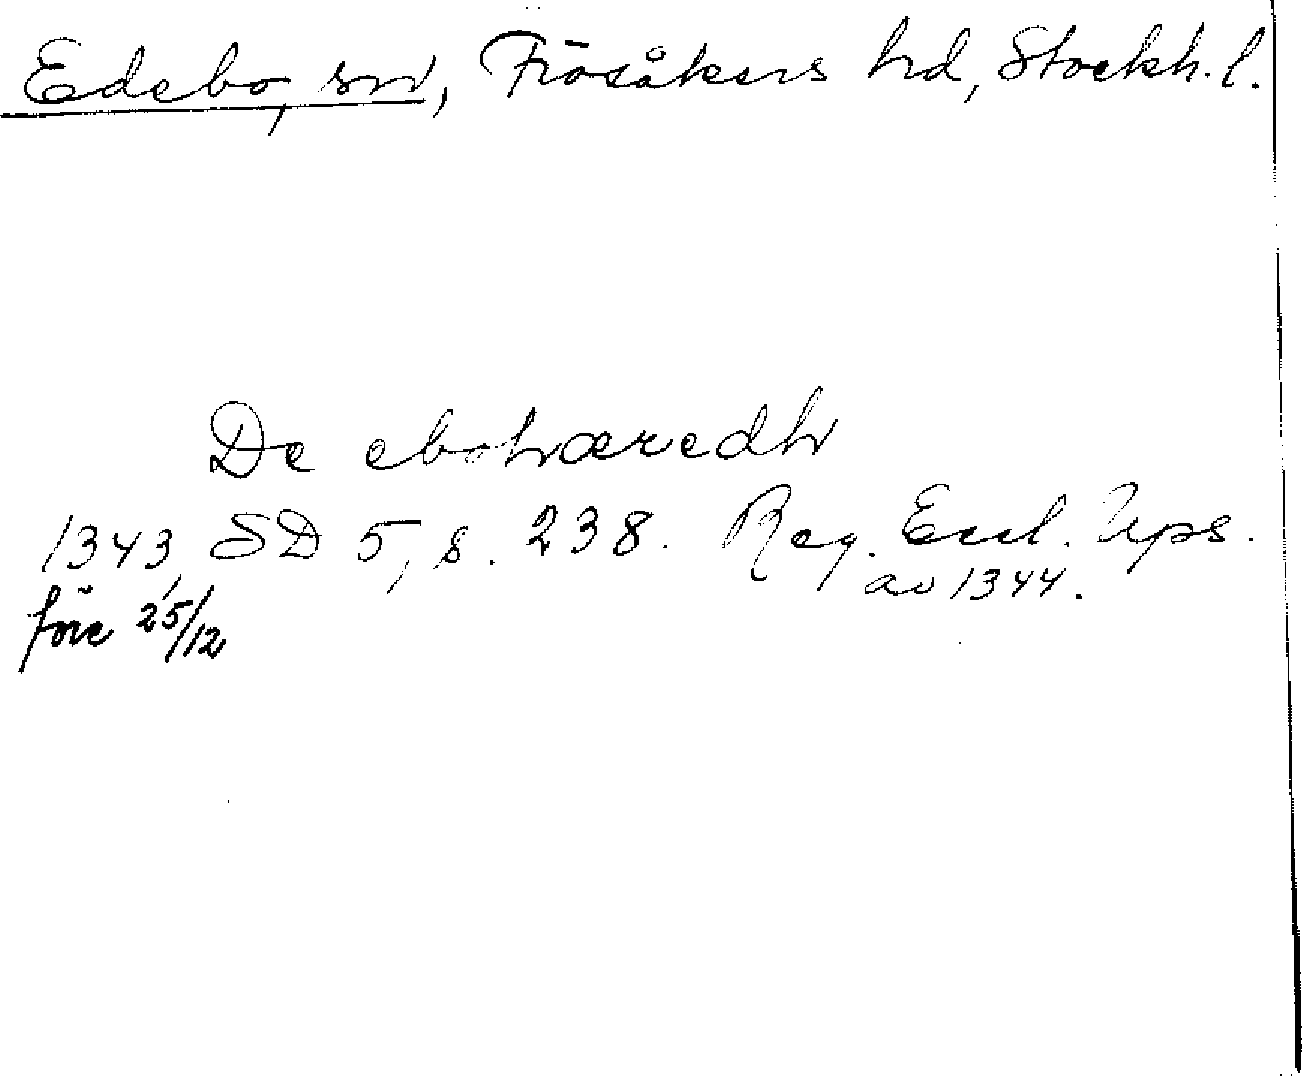 Edebo, sn, Frösåkers hd, Stockh. l.
De ebohæredh
1343, SD 5, s. 238. Reg. Eccl. Ups.
av 1344.
före 25/12